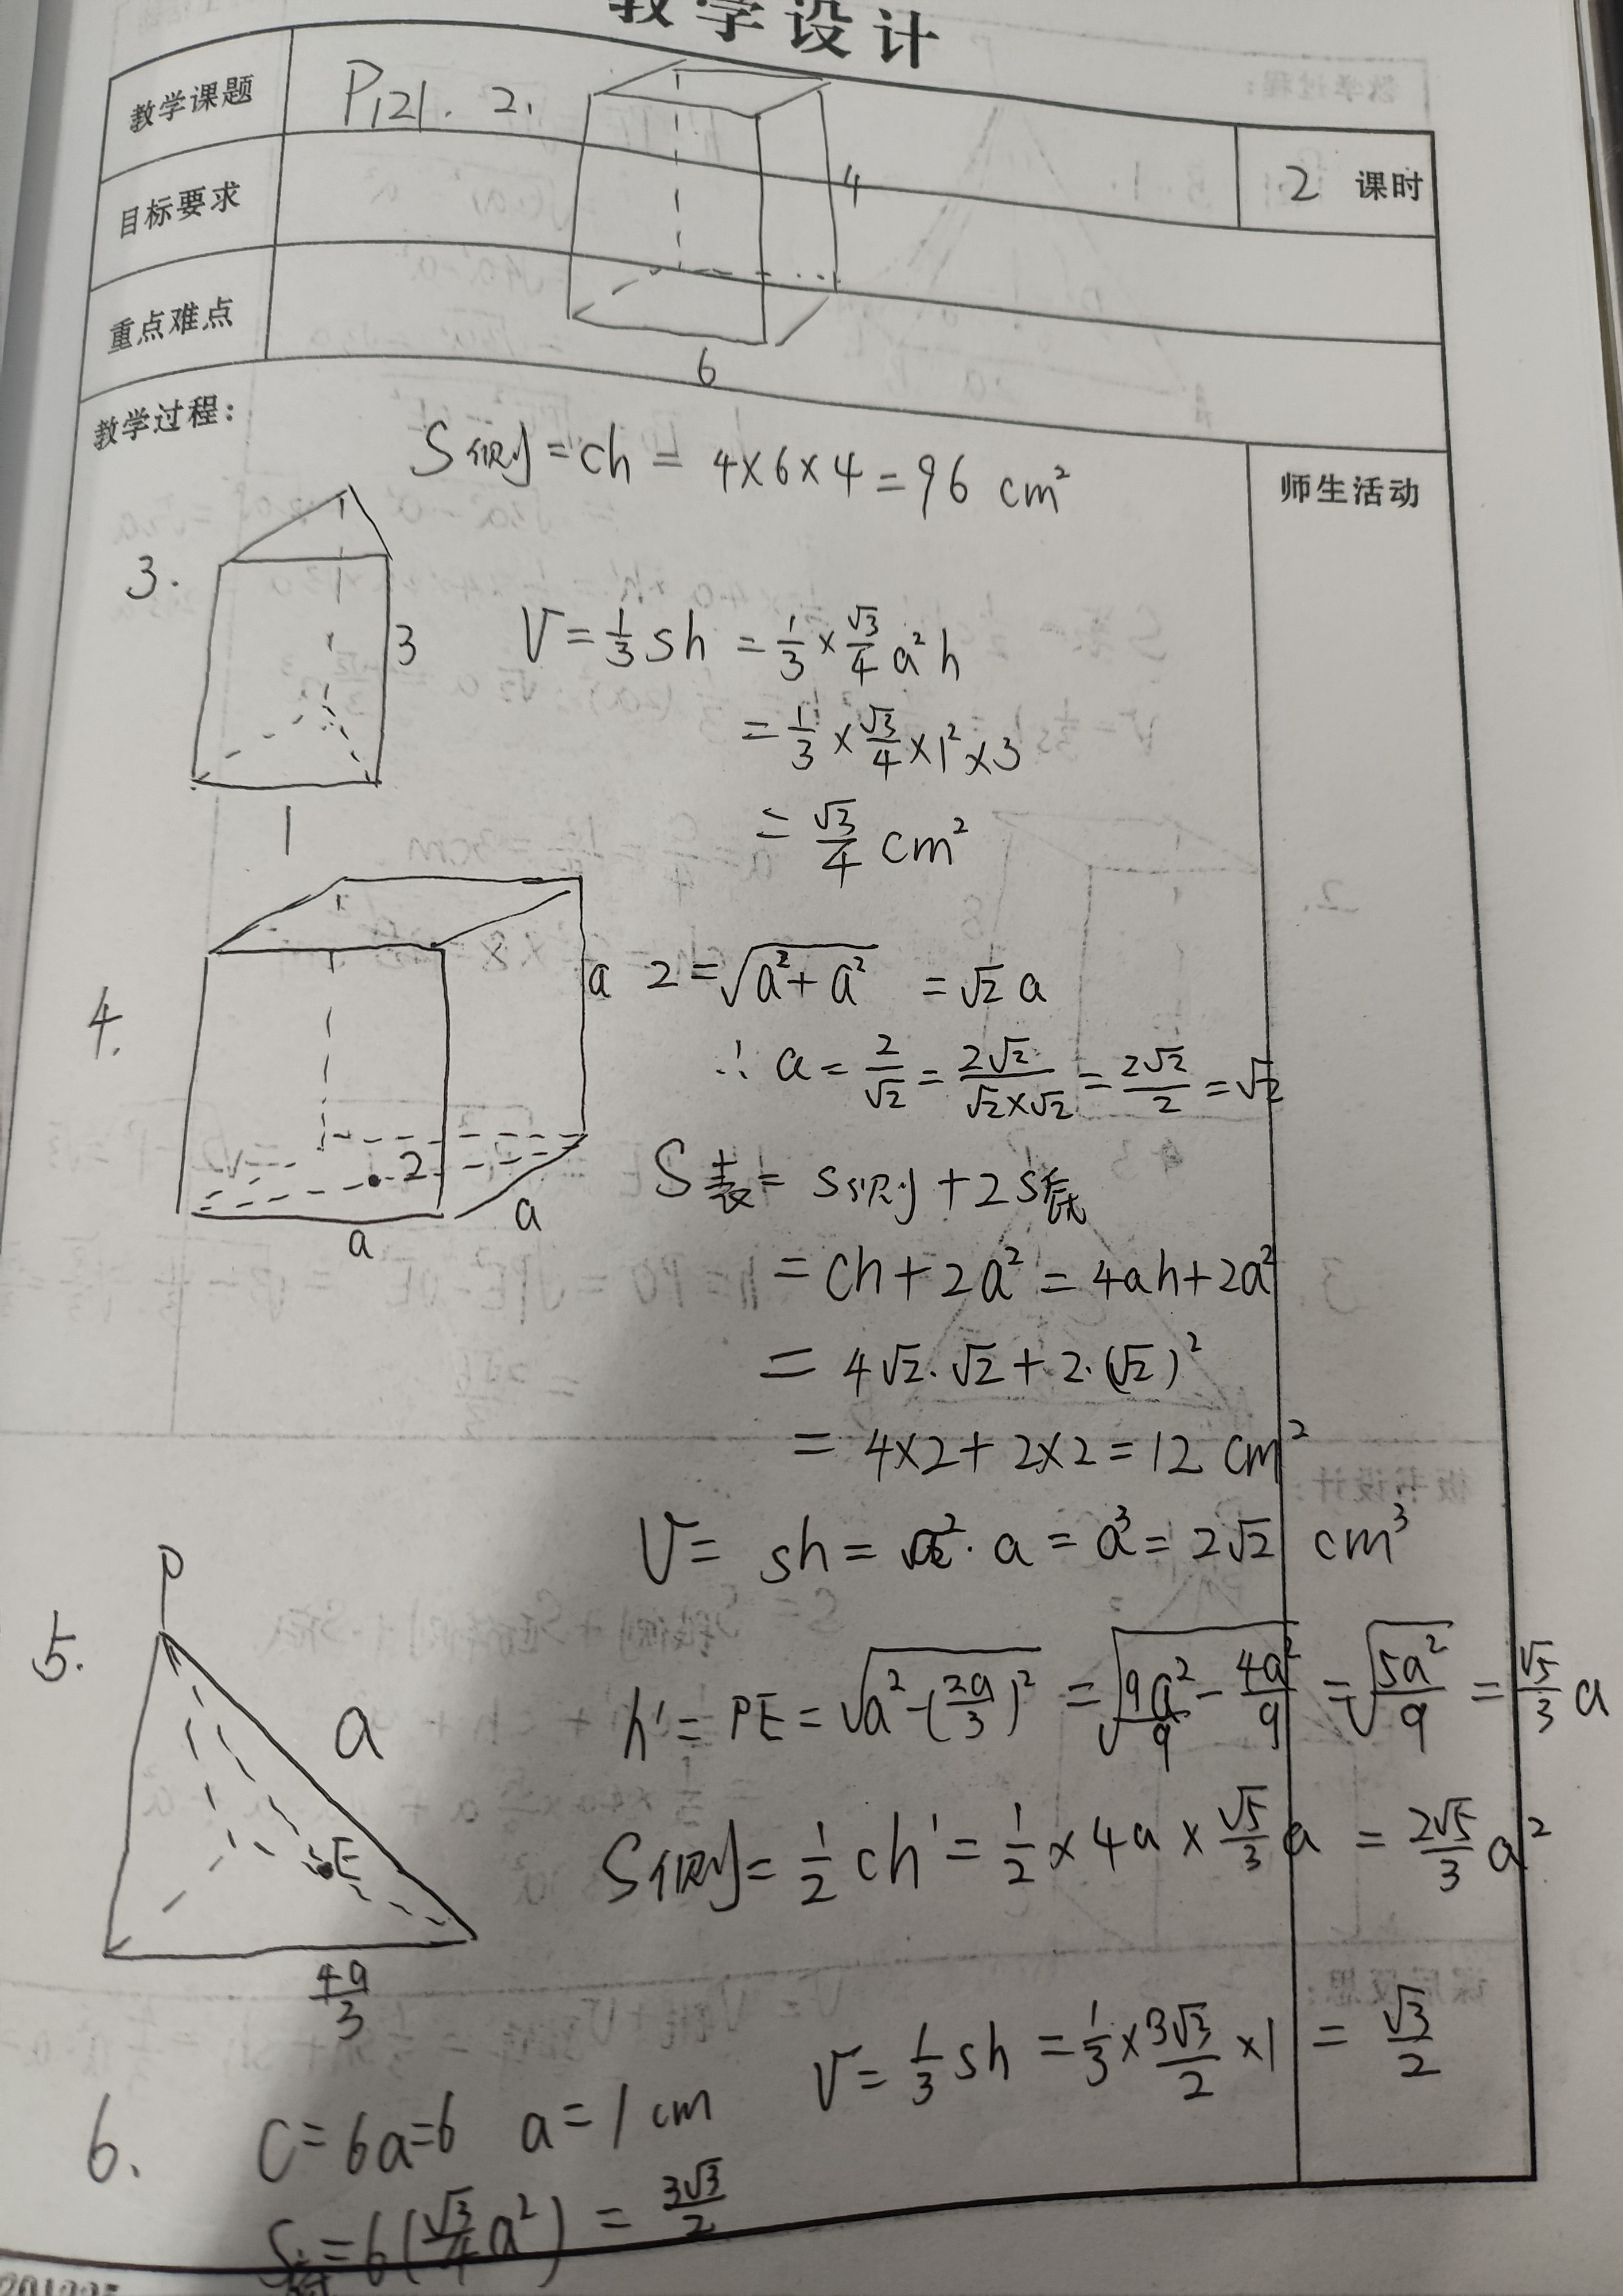 教学设计
教学课题 P121. 2.
2 课时
目标要求
4
重点难点
6
教学过程:
师生活动
S侧=ch=4×6×4=96 cm²
3.
3
1
V=1/3 sh=1/3×√3/4 a²h
=1/3×√3/4×1²×3
=√3/4 cm²
4.
a
2
a
a
2=√(a²+a²) =√2 a
∴ a=2/√2=2√2/(√2×√2)=2√2/2=√2
S表=S侧+2S底
=ch+2a²=4ah+2a²
=4√2·√2+2·(√2)²
=4×2+2×2=12 cm²
V= sh=a²·a=a³=2√2 cm³
5.
P
a
E
4a/3
h'=PE=√(a²-(2a/3)²)=√(9a²/9-4a²/9)=√(5a²/9)=√5/3 a
S侧=1/2 ch'=1/2×4a×√5/3 a=2√5/3 a²
6. C=6a=6 a=1 cm
V=1/3 sh=1/3×3√3/2×1=√3/2
S底=6(√3/4 a²)=3√3/2